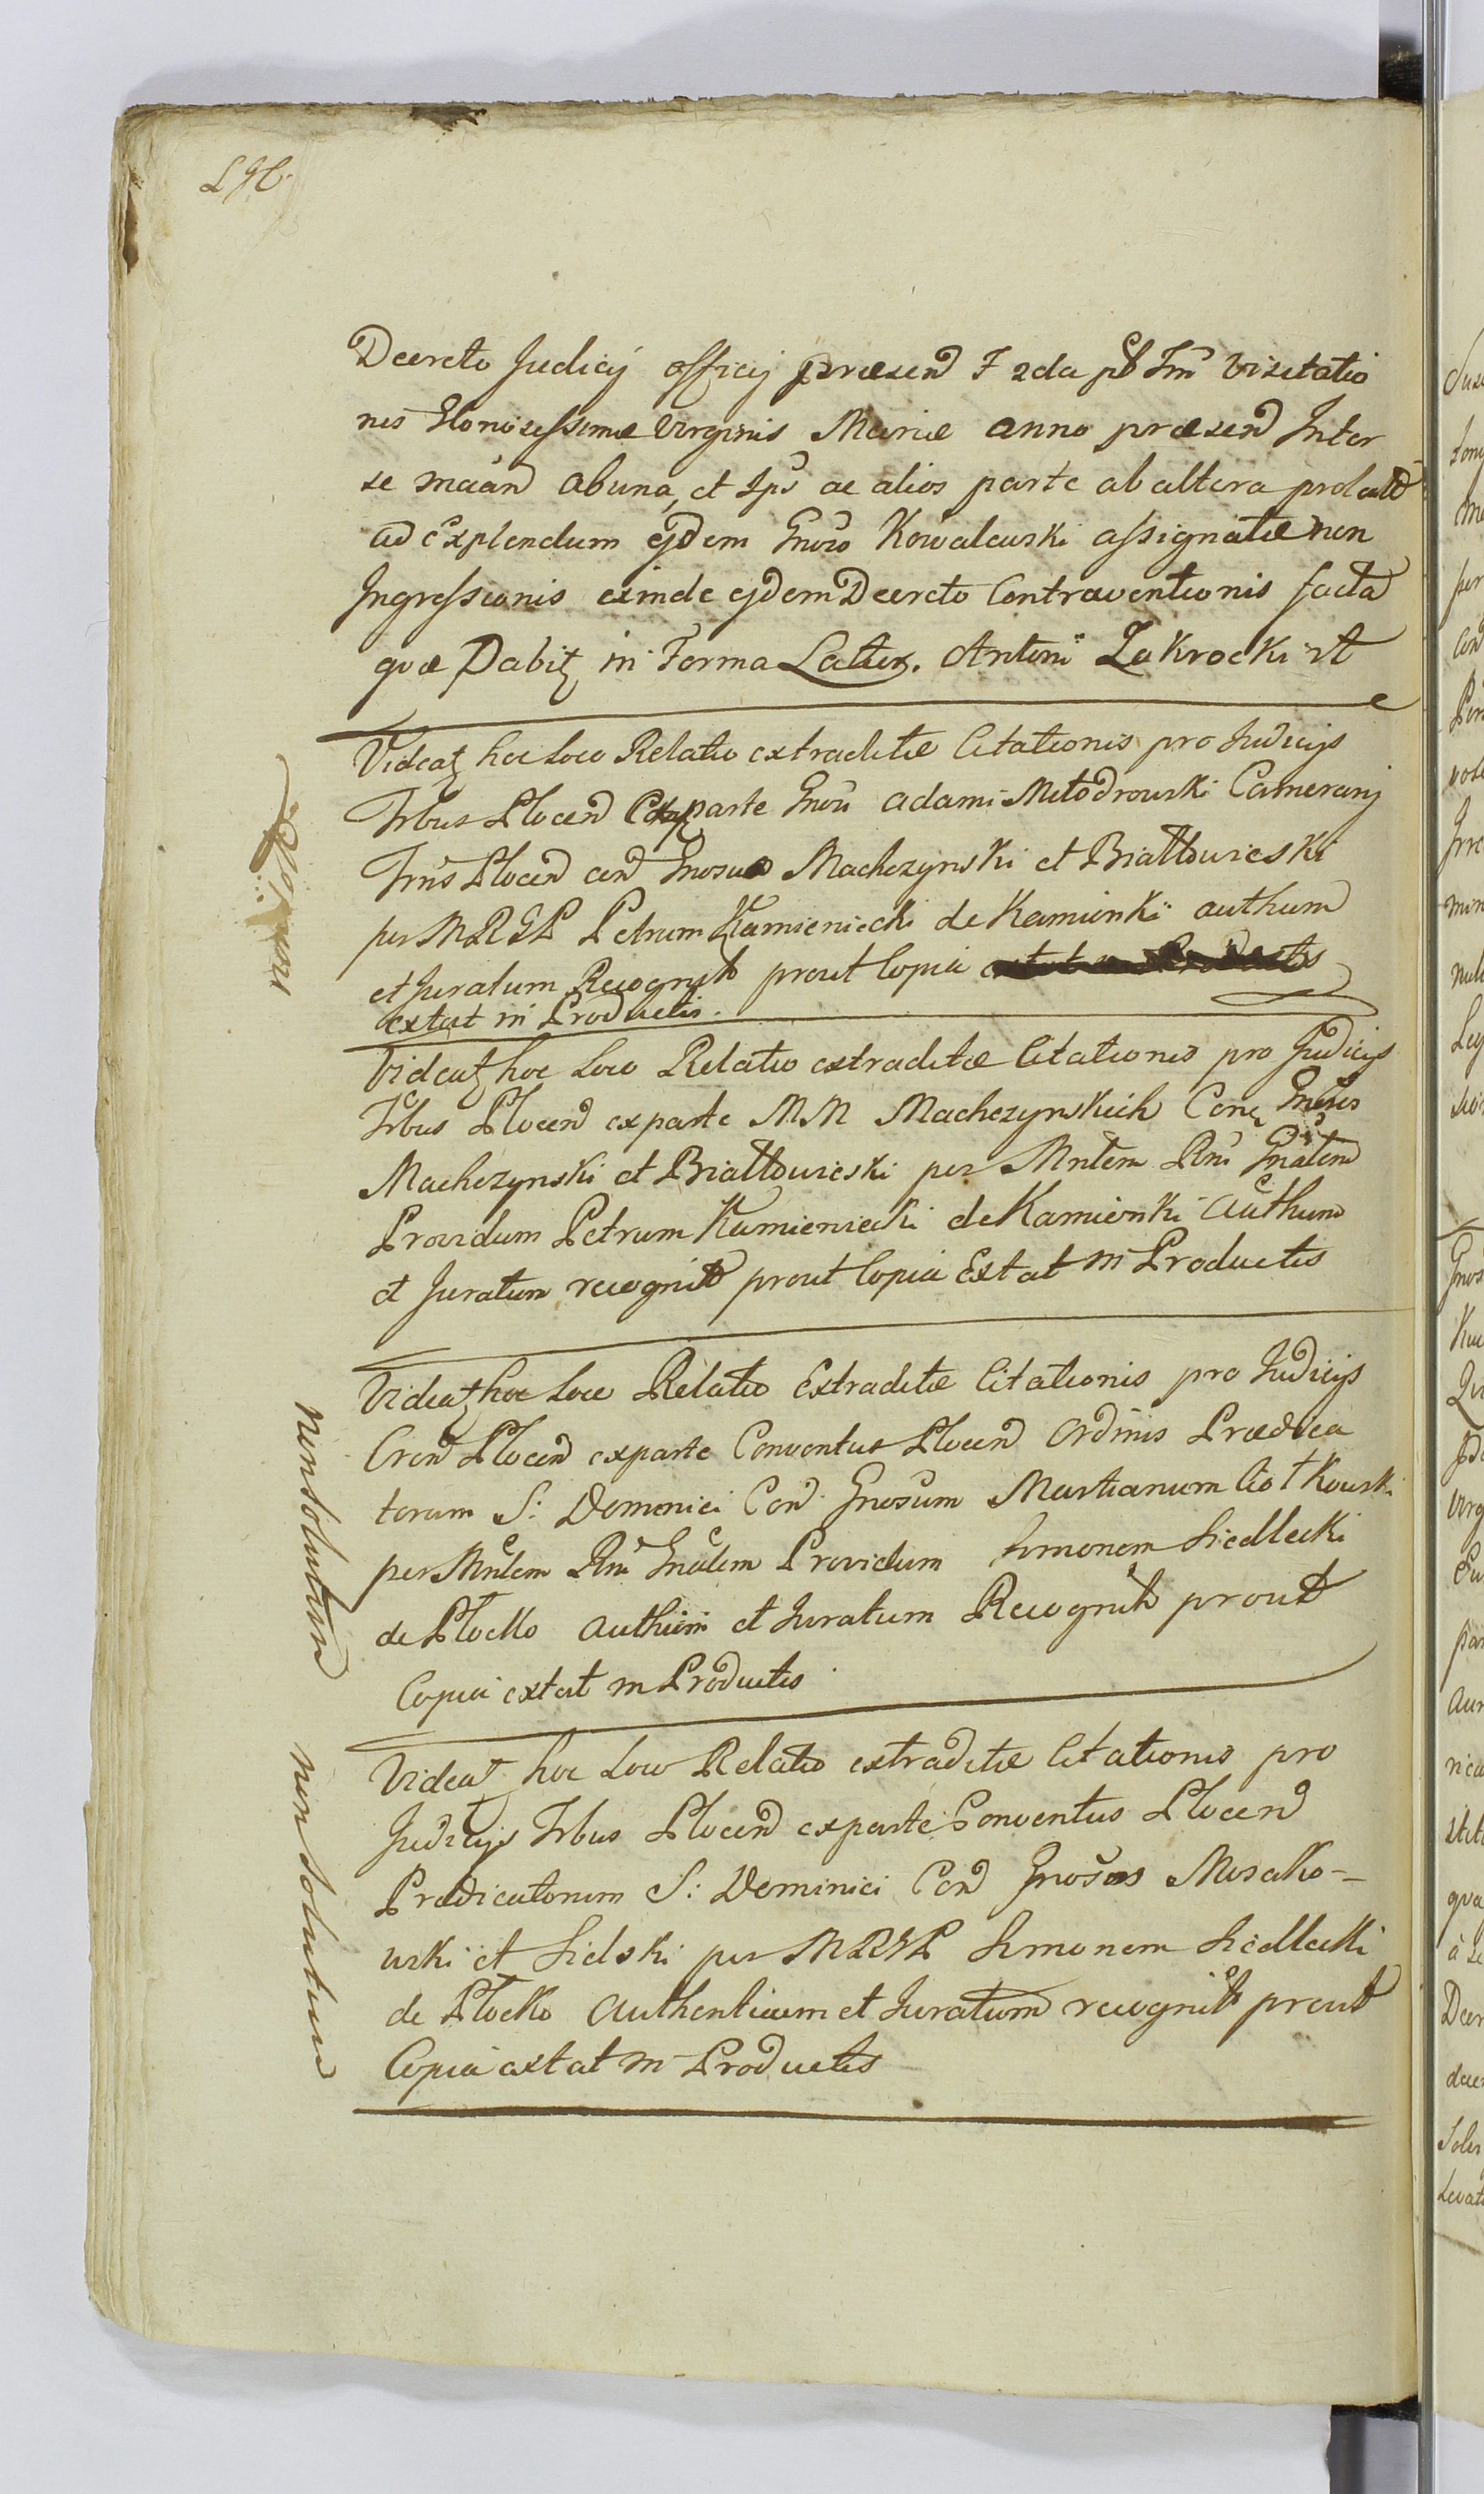 Decreto Judicij officij præsend F 2da pt Fm visitatio
nis Gloriosissimæ Virginis Mariæ anno præsend Inter
se maan ab una, et Ips ac alios parte ab altera prolatt
ad Explendum ejdem Gnoso Kowalewski assignatæ non
Ingressionis exinde ejdem Decreto Contraventionis facta
quæ Dabit in Forma Latiori. Antoni Zakrocki
Videat hoc loco Relatio extraditæ Citationis pro Judicijs
Trbus Plocen ex parte Gnosi Adami Młodrowski Camerarij
Trris Plocen con Gnosus Machczynski et Białłowieski
per MRGP Petrum Kamieniecki de Kamionki authum
et Juratum Recognit prout Copia
extat in Productis.
Videat hoc Loco Relatio extraditæ Citationis pro Judicijs
Trbus Plocen ex parte MM Machczynskich Con Gnosos
Machczynski et Białłowieski per Mntem Rni Gnalem
Providum Petrum Kamieniecki de Kamionki Authum
et Juratum recognit prout Copia Extat in Productis
Videat hoc Loco Relatio Extraditæ Citationis pro Judicijs
Cren Plocen ex parte Conventus Plocen Ordinis Prædica
torum S: Dominici Con Gnosum Martianum Ciotkowski
per Mntem Rni Gnalem Providum Simonem Siedlecki
de Plocko authum et Juratum Recognit prout
Copia extat in Productis
Videat hoc Loco Relatio extraditæ Citationis pro
Judicijs Trbus Plocen ex parte Conventus Plocen
Prædicatorum S: Dominici Con Gnosos Mosako-
wski et Sielski per MRGP Simonem Siedlecki
de Plocko authenticum et Juratum recognit prout
Copia extat in Productis
non solutum
non solutum